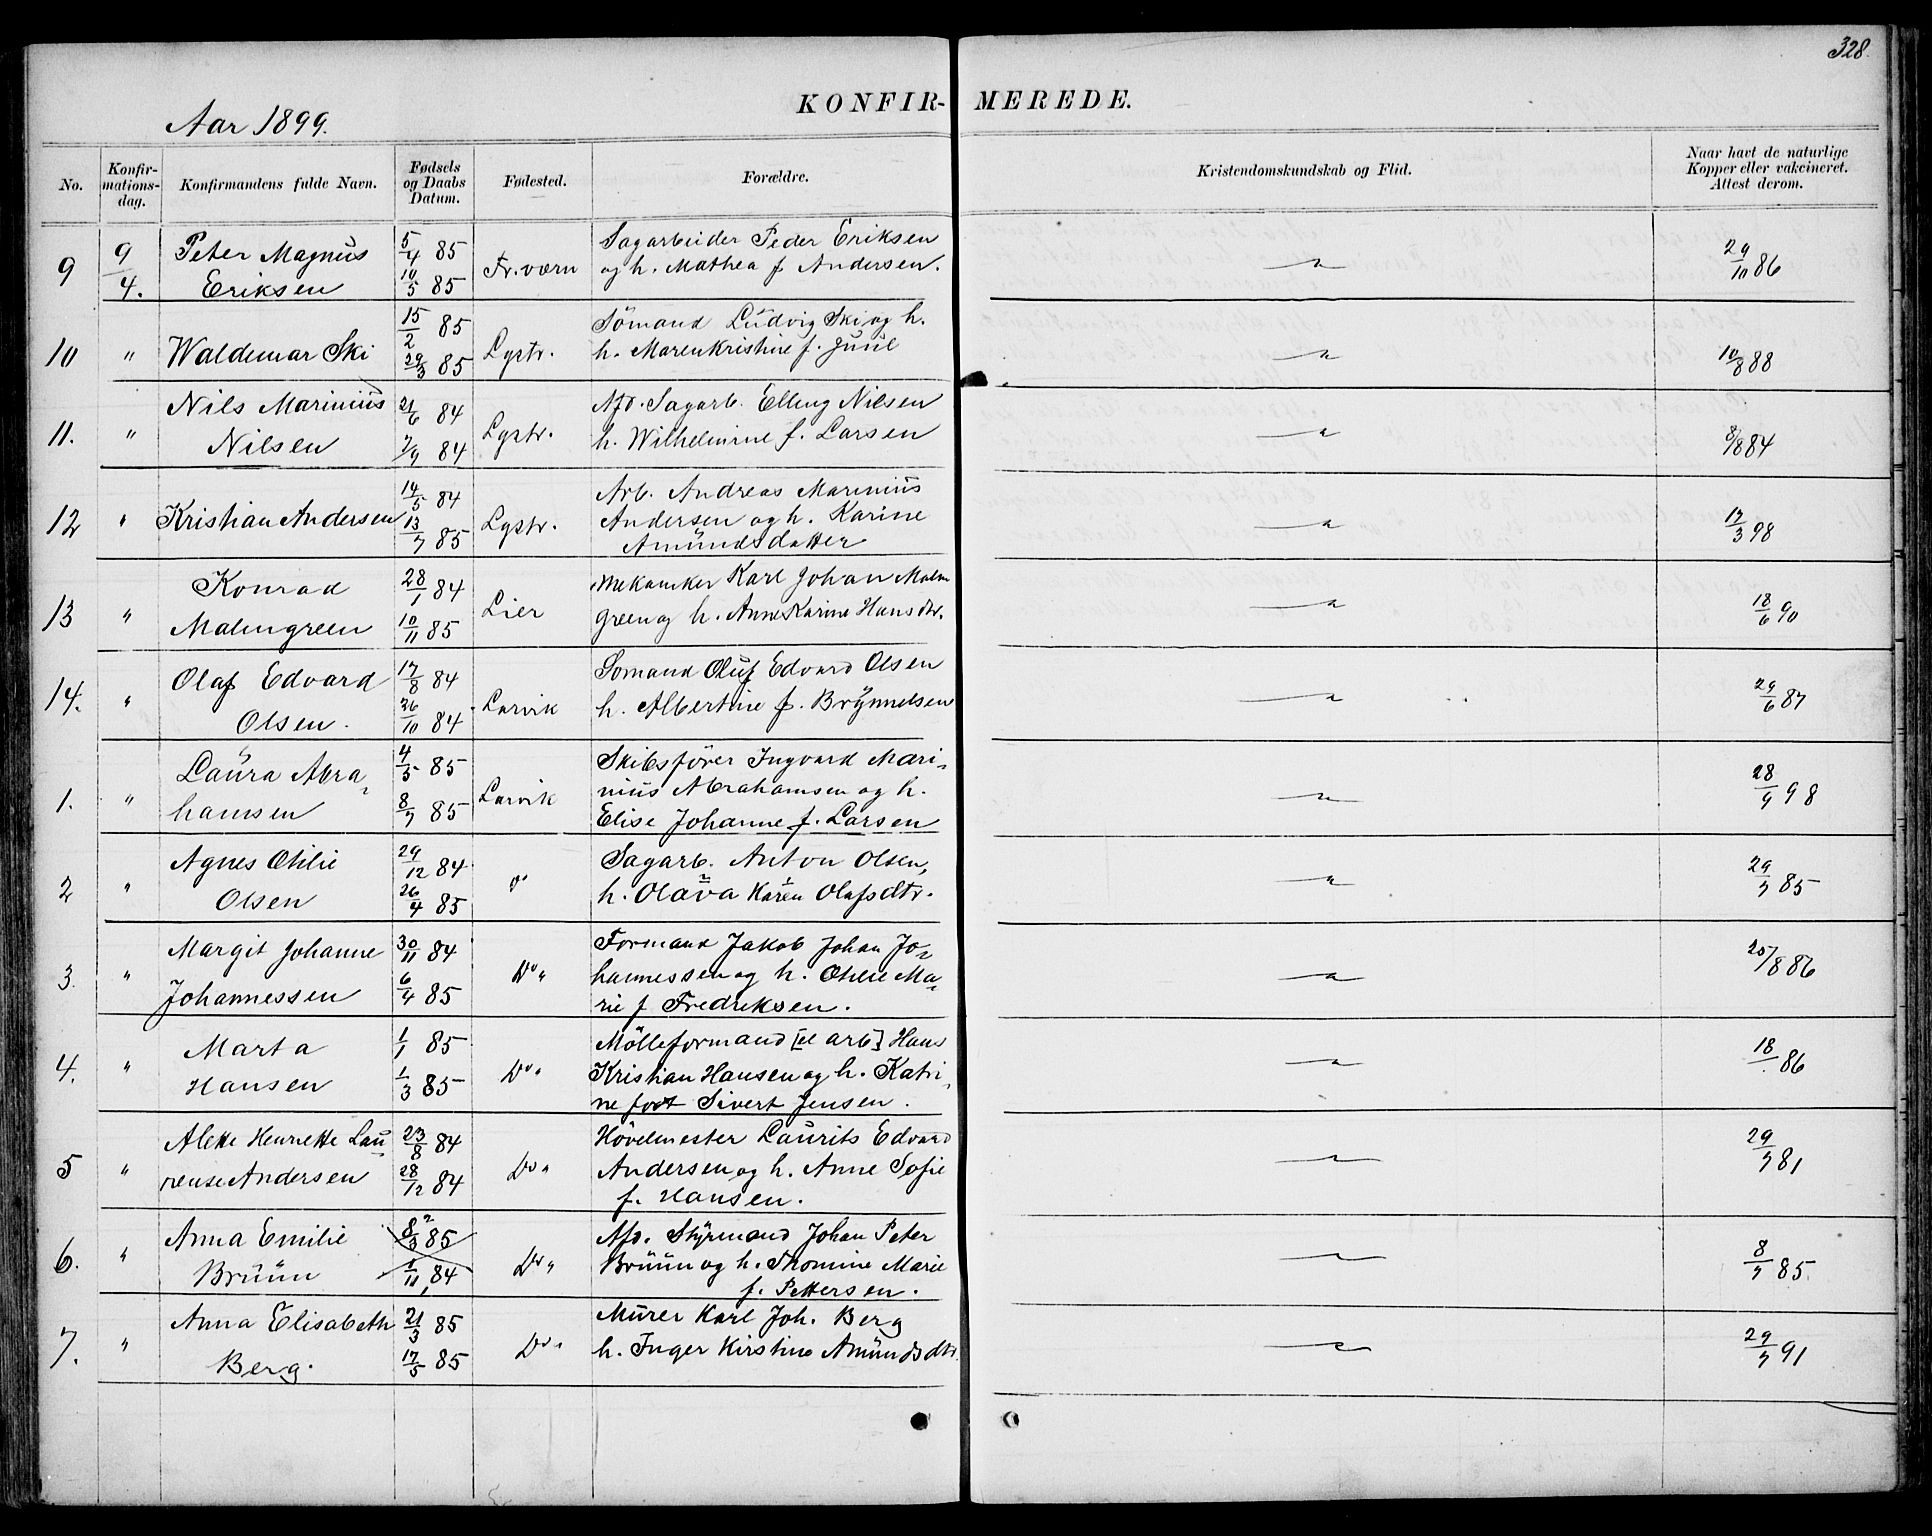 328.
KONFIR- MEREDE.
Aar 1899.
No. Konfir-mations-dag. Konfirmandens fulde Navn. Fødsels og Daabs Datum. Fødested. Forældre. Kristendomskundskab og Flid. Naar havt de naturlige Kopper eller vakcineret. Attest derom.
9 9/4. Peter Magnus 5/4 85 Fr.værn Sagarbeider Peder Eriksen 29/10 86
Eriksen 10/5 85 og h. Mathea f Andersen.
10 " Waldemar Ski 15/2 85 Lgstr. Sömand Ludvig Ski og h. 10/8 88
29/3 85 h. Maren Kristine f. Juul
11. " Nils Marinius 21/6 84 Lgstr. Afd. Sagarb. Elling Nilsen 8/8 84
Nilsen 7/9 84 h. Wilhelmine f. Larsen
12 " Kristian Andersen 14/5 84 Lgstr. Arb. Andreas Marinius 17/3 98
13/7 85 Andersen og h. Karine
Amundsdatter
13 " Konrad 28/1 84 Lier Mekaniker Karl Johan Malm 18/6 90
Malmgreen 10/11 85 green og h. Anne Karine Hansdtr.
14. " Olaf Edvard 17/8 84 Larvik Somand Oluf Edvard Olsen 29/6 87
Olsen. 26/10 84 h. Albertine f. Brynnelsen
1. " Laura Abra- 4/5 85 Larvik Skibsförer Ingvard Mari- 28/9 98
hamsen 8/7 85 nius Abrahamsen og h.
Elise Johanne f. Larsen
2 " Agnes Othilie 29/12 84 Sagarb. Anton Olsen, 29/7 85
Olsen 26/4 85 h. Olava Karen Olafsdtr.
3. " Margit Johanne 30/11 84 Do " Formand Jakob Johan Jo- 25/8 86
Johannessen 6/4 85 hannessen og h. Othilie Ma-
rie f Fredriksen.
4. " Marta 1/1 85 Do " Mölleformand [el arb] Hans 18/ 86
Hansen 1/3 85 Kristian Hansen og h. Katri-
ne født Sivert Jensen.
5 " Alette Henriette Lau- 23/8 84 Do " Hövelmester Laurits Edvard 29/7 81
rense Andersen 28/12 84 Andersen og h. Anne Sofie
f. Hansen.
6. " Anna Emilie 8/3 85 Do " Afd. Styrmand Johan Peter 8/7 85.
Bruun 1/11 84 Bruun og h. Thomine Marie
f. Pettersen.
7. " Anna Elisabeth 21/3 85 Do " Murer Karl Joh. Berg 29/7 91
Berg. 17/5 85 h. Inger Kirstine Amundsdtr.